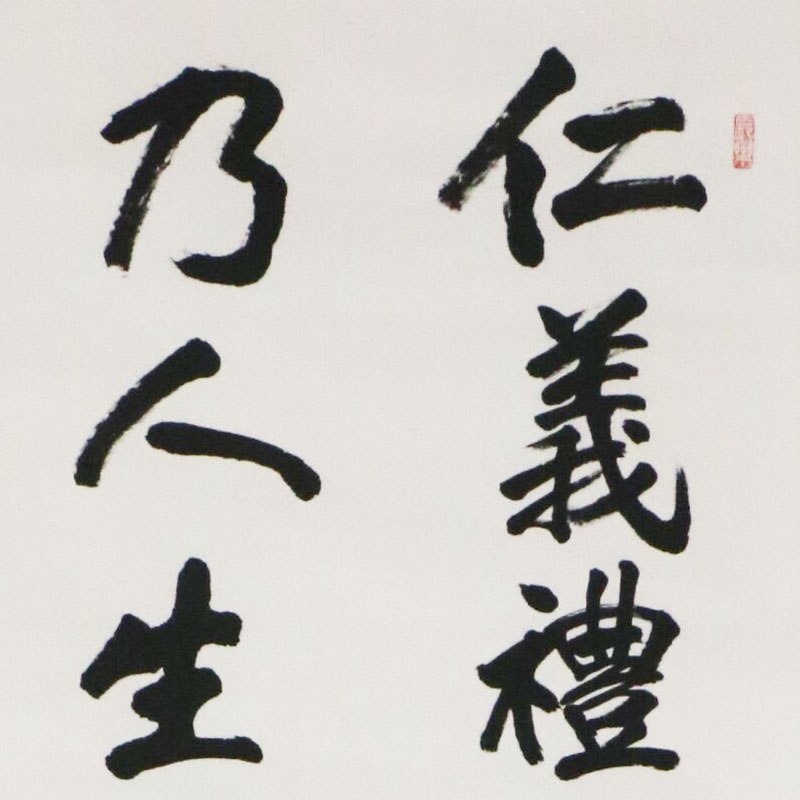 仁義禮
乃人生